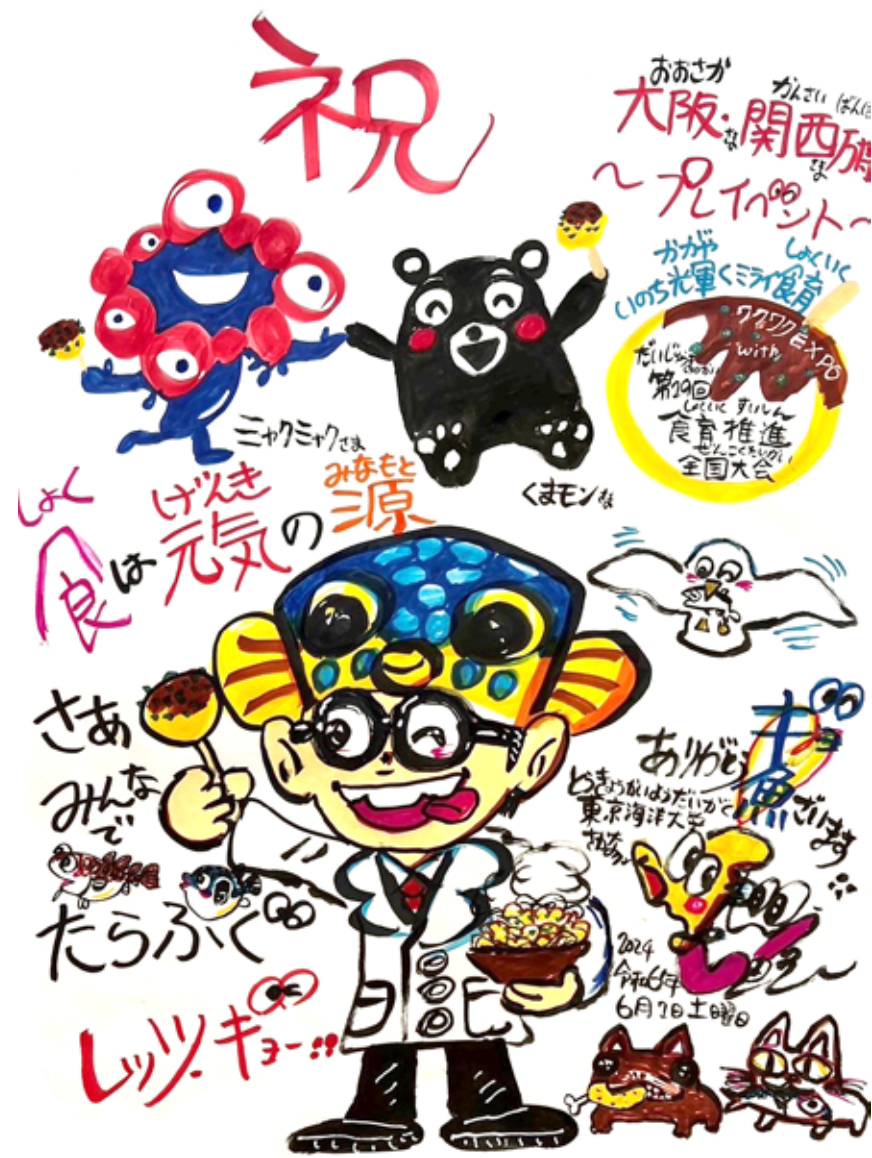 祝
おおさか
大阪・関西万博
かんさい
な
さま
～プレイベント～
かがや
しょくいく
いのち光輝くミライ食育
ワクワクEXPO
with
第19回
しょくいく すいしん
食育推進
ぜんこくたいかい
全国大会
ミャクミャクさま
くまモンな
しょく
げんき
みなもと
食は元気の源
さあ
みんな
で
たらふく
レッツ・ギョー!!
ありがとう
ギョ
魚ざいます
とうきょうかいようだいがく
東京海洋大学
2024
令和6年
土曜日